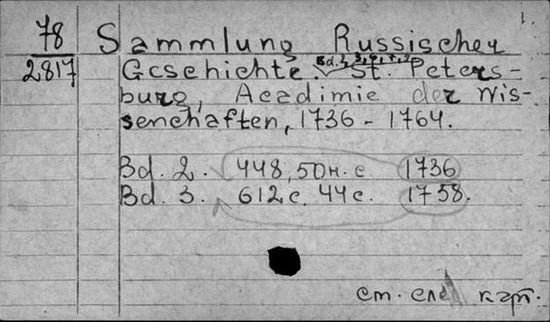 78
2817
Sammlung Russischer
Geschichte. St. Peters-
burg, Academie der Wis-
senchaften, 1736 - 1764.
Bd. 2. 448, 50 н. с 1736
Bd. 3. 612 с. 44 с. 1738.
см. след карт.